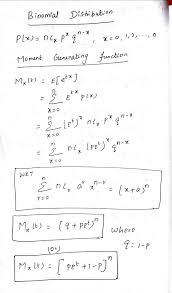 Binomial Distribution
P(x) = nCₓ pˣ qⁿ⁻ˣ, x = 0, 1, 2, ..., n
Moment Generating Function
Mₓ(t) = E[eᵗˣ]
= Σₓ₌₀ⁿ eᵗˣ P(x)
= Σₓ₌₀ⁿ (eᵗ)ˣ nCₓ pˣ qⁿ⁻ˣ
= Σₓ₌₀ⁿ nCₓ (peᵗ)ˣ qⁿ⁻ˣ
WKT
Σᵣ₌₀ⁿ nCᵣ aʳ xⁿ⁻ʳ = (x+a)ⁿ
Mₓ(t) = (q + peᵗ)ⁿ where
(or) q = 1-p
Mₓ(t) = [peᵗ + 1-p]ⁿ